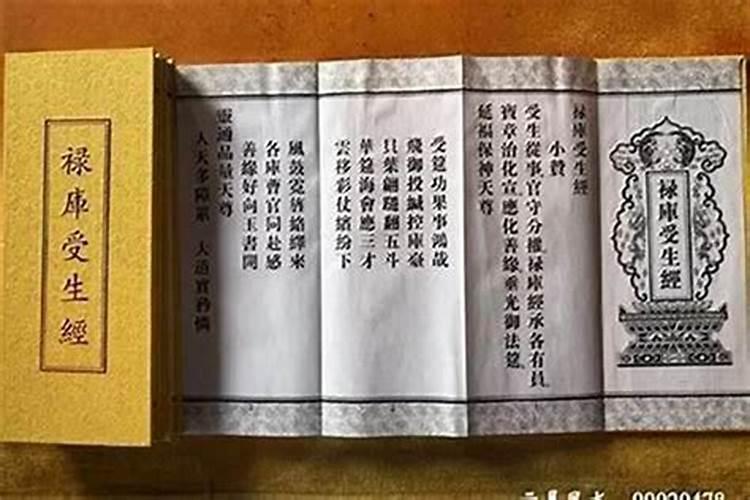 祿庫受生經
祿庫受生經
祿庫受生經
小贊
受生從事官守分權祿庫經承各有員
寶章治化宣應化善緣垂光御法筵
延福保神天尊
受筵功果事鴻哉
飛御投緘控庫臺
貝葉翩翻五斗
華筵海會應三才
雲移彩仗繽紛下
風鼓霓旌絡繹來
各庫曹官同赴感
善緣好向玉書開
靈通品量天尊
人天多障累 大道實矜憐
90020478